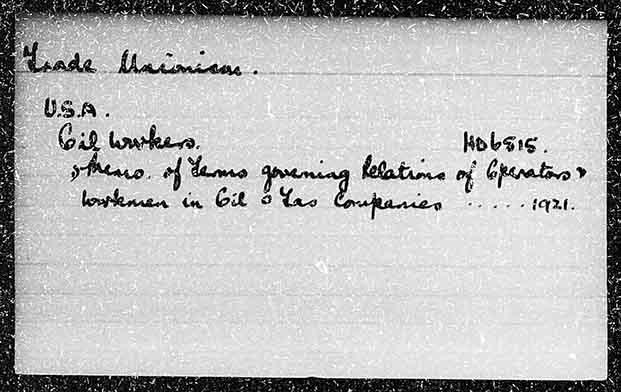 Trade Unionism.
U.S.A.
Oil Workers. HD6515.
Memo. of Terms governing Relations of Operators &
Workmen in Oil & Gas Companies ..... 1921.